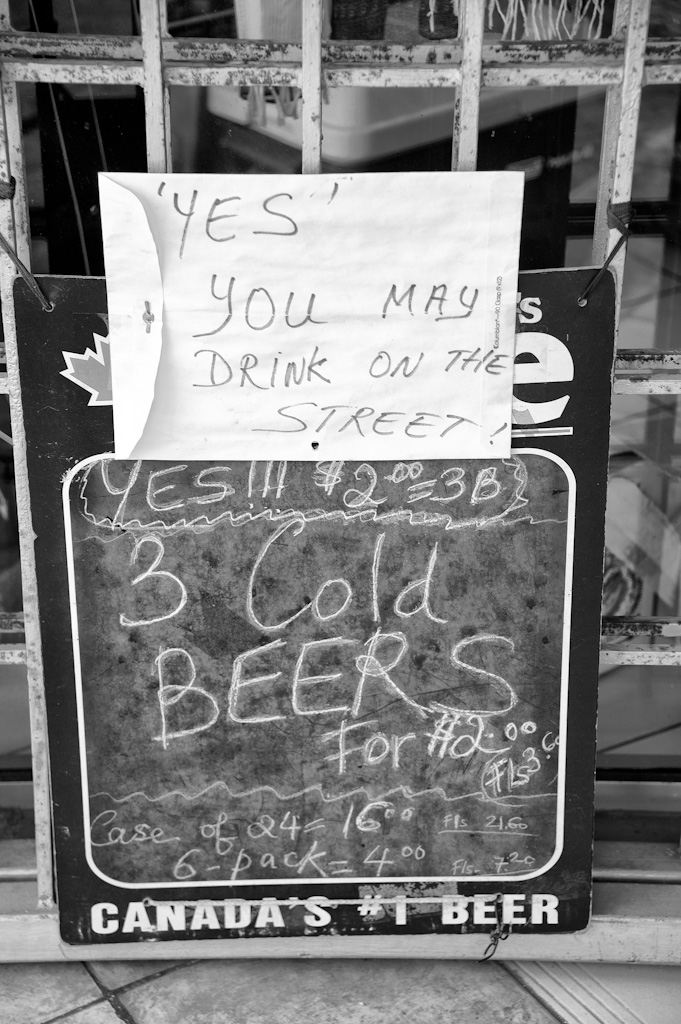 "YES"
YOU MAY
DRINK ON THE
STREET!
YES!!! $2.00=3B
3 Cold
BEERS
For $2.00
Fls 3.60
Case of 24= 16.00 Fls 21.60
6-pack= 4.00 Fls. 7.20
CANADA'S #1 BEER